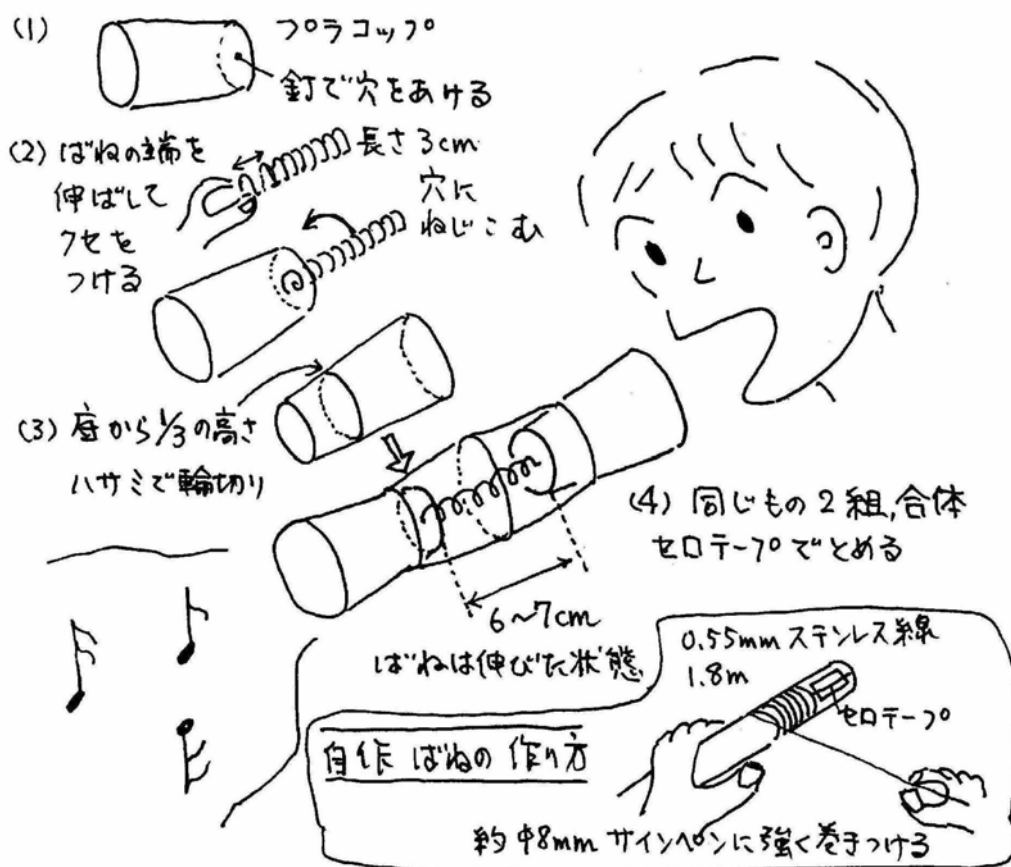 (1)
プラコップ
釘で穴をあける
(2) ばねの端を
伸ばして
クセを
つける
長さ3cm
穴に
ねじこむ
(3) 底から1/3の高さ
ハサミで輪切り
(4) 同じもの2組,合体
セロテープでとめる
6~7cm
ばねは伸びた状態
0.55mmステンレス線
1.8m
セロテープ
自作 ばねの作り方
約φ8mmサインペンに強く巻きつける